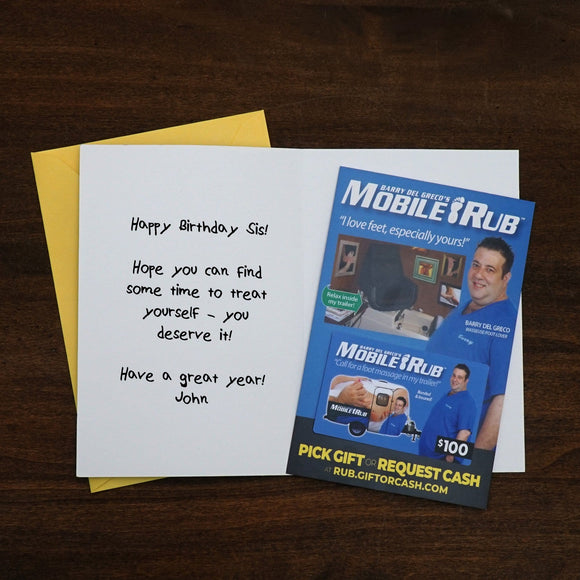 Happy Birthday Sis!
Hope you can find
some time to treat
yourself - you
deserve it!
Have a great year!
John
BARRY DEL GRECO'S
MOBILE RUB™
"I love feet, especially yours!"
Relax inside
my trailer!
BARRY DEL GRECO
Barry
BARRY DEL GRECO'S
MOBILE RUB™
"Call for a foot massage in my trailer!"
Bonded
& licensed!
MOBILE RUB
$100
PICK GIFT OR REQUEST CASH
AT RUB.GIFTORCASH.COM